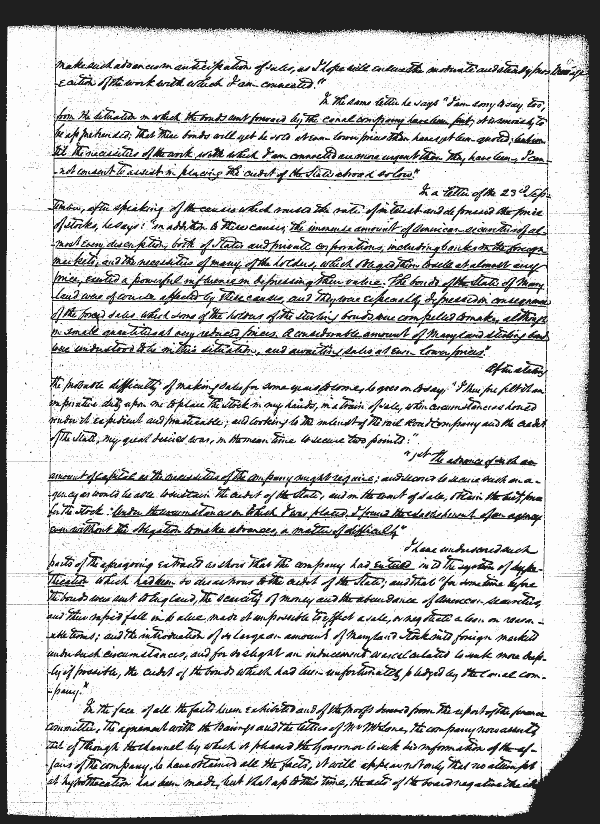 make such advances in anticipation of sales, as I hope will ensure the moderate and steady pros-
-ecution of the work with which I am connected."
In the same letter he says "I am sorry to say too,
from the situation in which the bonds sent forward by the canal company have been put, it is seriously to
be apprehended, that these bonds will yet be sold at even lower prices than have yet been quoted; but
til the necessities of the work with which I am connected are more urgent than they have been, I can-
-not consent to assist in placing the credit of the State abroad so low."
In a letter of the 23d Sep-
tember, after speaking of the causes which raised the rate of interest and depressed the price
of stocks, he says: "in addition to these causes, the immense amount of American securities of al-
most every description, both of States and private corporations, including banks in the foreign
markets, and the necessities of many of the holders, which obliged them to sell at almost any
price, exerted a powerful influence in depressing their value. The bonds of the State of Mary-
land was of course affected by these causes, and they were especially depressed in consequence
of the forced sales, which some of the holders of the sterling bonds, were compelled to make, although
in small quantities at very reduced prices. A considerable amount of Maryland sterling bonds
were understood to be in this situation, and awaiting sales at even lower prices."
After stating
the probable difficulty of making sales for some years to come, he goes on to say: "I therefore felt it an
imperative duty upon me to place the stock in my hands, in a train of sale, when circumstances should
render it expedient and practicable; and looking to the interest of the rail Road company and the credit
of the State, my great desire was, in the mean time to secure two points:"
"1st the advance of such an
amount of capital as the necessities of the company might require; and second to secure such an a-
gency as would be able to sustain the credit of the State, and in the event of sale, obtain the best price
for the stock. Under the circumstances in which I was placed, I found the establishment of an agency
even without the obligation to make advances, a matter of difficulty"
I have underscored such
parts of the foregoing extracts as show that the company had entered into the system of hypo-
thecation which had been so disastrous to the credit of the State; and that "for some time before
the bonds were sent to England, the scarcity of money and the abundance of American securities,
and their rapid fall in value, made it impossible to effect a sale, or negotiate a loan on reason-
able terms; and the introduction of so large an amount of Maryland Stock into foreign markets
under such circumstances, and for so slight an inducement was calculated to sink more deep-
ly if possible, the credit of the bonds which had been unfortunately pledged by the canal com-
-pany."
In the face of all the facts herein exhibited and of the proofs derived from the report of the finance
committee, the agreement with the Barings and the letters of Mr McLane, the company now asserts
that if through the channel by which it pleased the Governor to seek his information of the af-
fairs of the company, he have obtained all the facts, it will appear not only that no attempt
at hypothecation has been made, but that up to this time, the acts of the board negative the